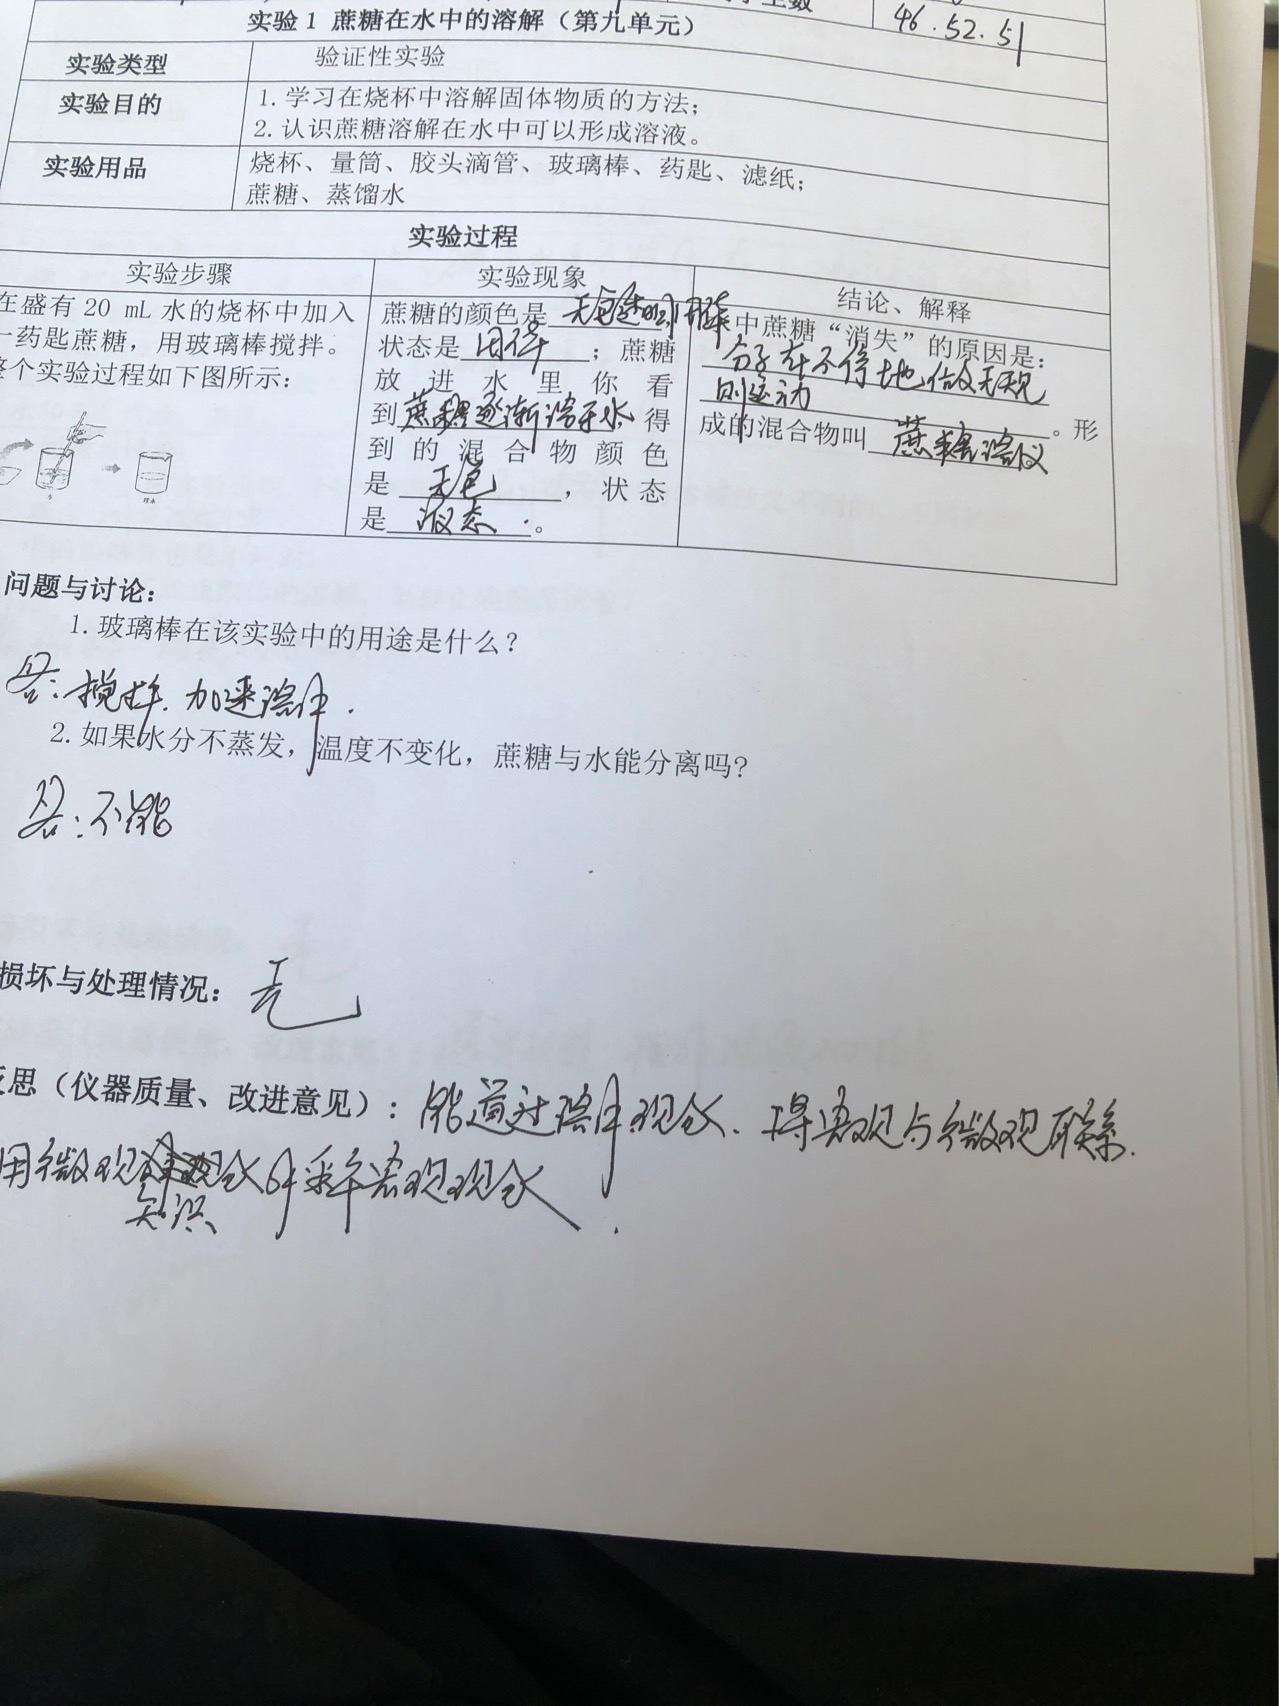 46.52.51
实验1 蔗糖在水中的溶解（第九单元）
实验类型 验证性实验
实验目的
1.学习在烧杯中溶解固体物质的方法；
2.认识蔗糖溶解在水中可以形成溶液。
实验用品
烧杯、量筒、胶头滴管、玻璃棒、药匙、滤纸；
蔗糖、蒸馏水
实验过程
实验步骤 实验现象 结论、解释
在盛有20 mL水的烧杯中加入
一药匙蔗糖，用玻璃棒搅拌。
整个实验过程如下图所示：
蔗糖的颜色是无色透明
状态是固体；蔗糖
放进水里你看
到蔗糖逐渐溶于水，得
到的混合物颜色
是无色，状态
是液态。
中蔗糖“消失”的原因是：
分子在不停地做无规
则运动。形
成的混合物叫蔗糖溶液
问题与讨论：
1.玻璃棒在该实验中的用途是什么？
答：搅拌.加速溶解.
2.如果水分不蒸发，温度不变化，蔗糖与水能分离吗?
答：不能
损坏与处理情况：无
反思（仪器质量、改进意见）：能通过溶解现象.将宏观与微观联系.
用微观现象解释宏观现象.
知识